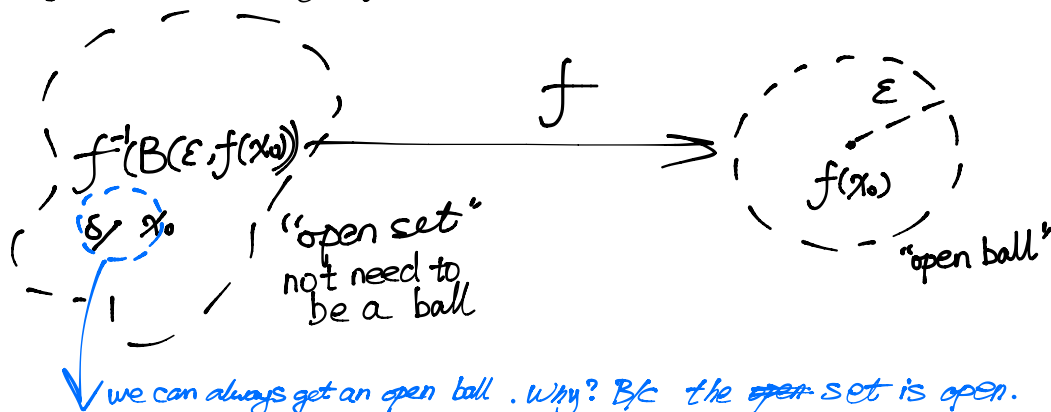 f
ε
f⁻¹(B(ε, f(x₀)))
f(x₀)
δ x₀
"open set"
"open ball"
not need to
be a ball
we can always get an open ball. Why? B/c the open set is open.